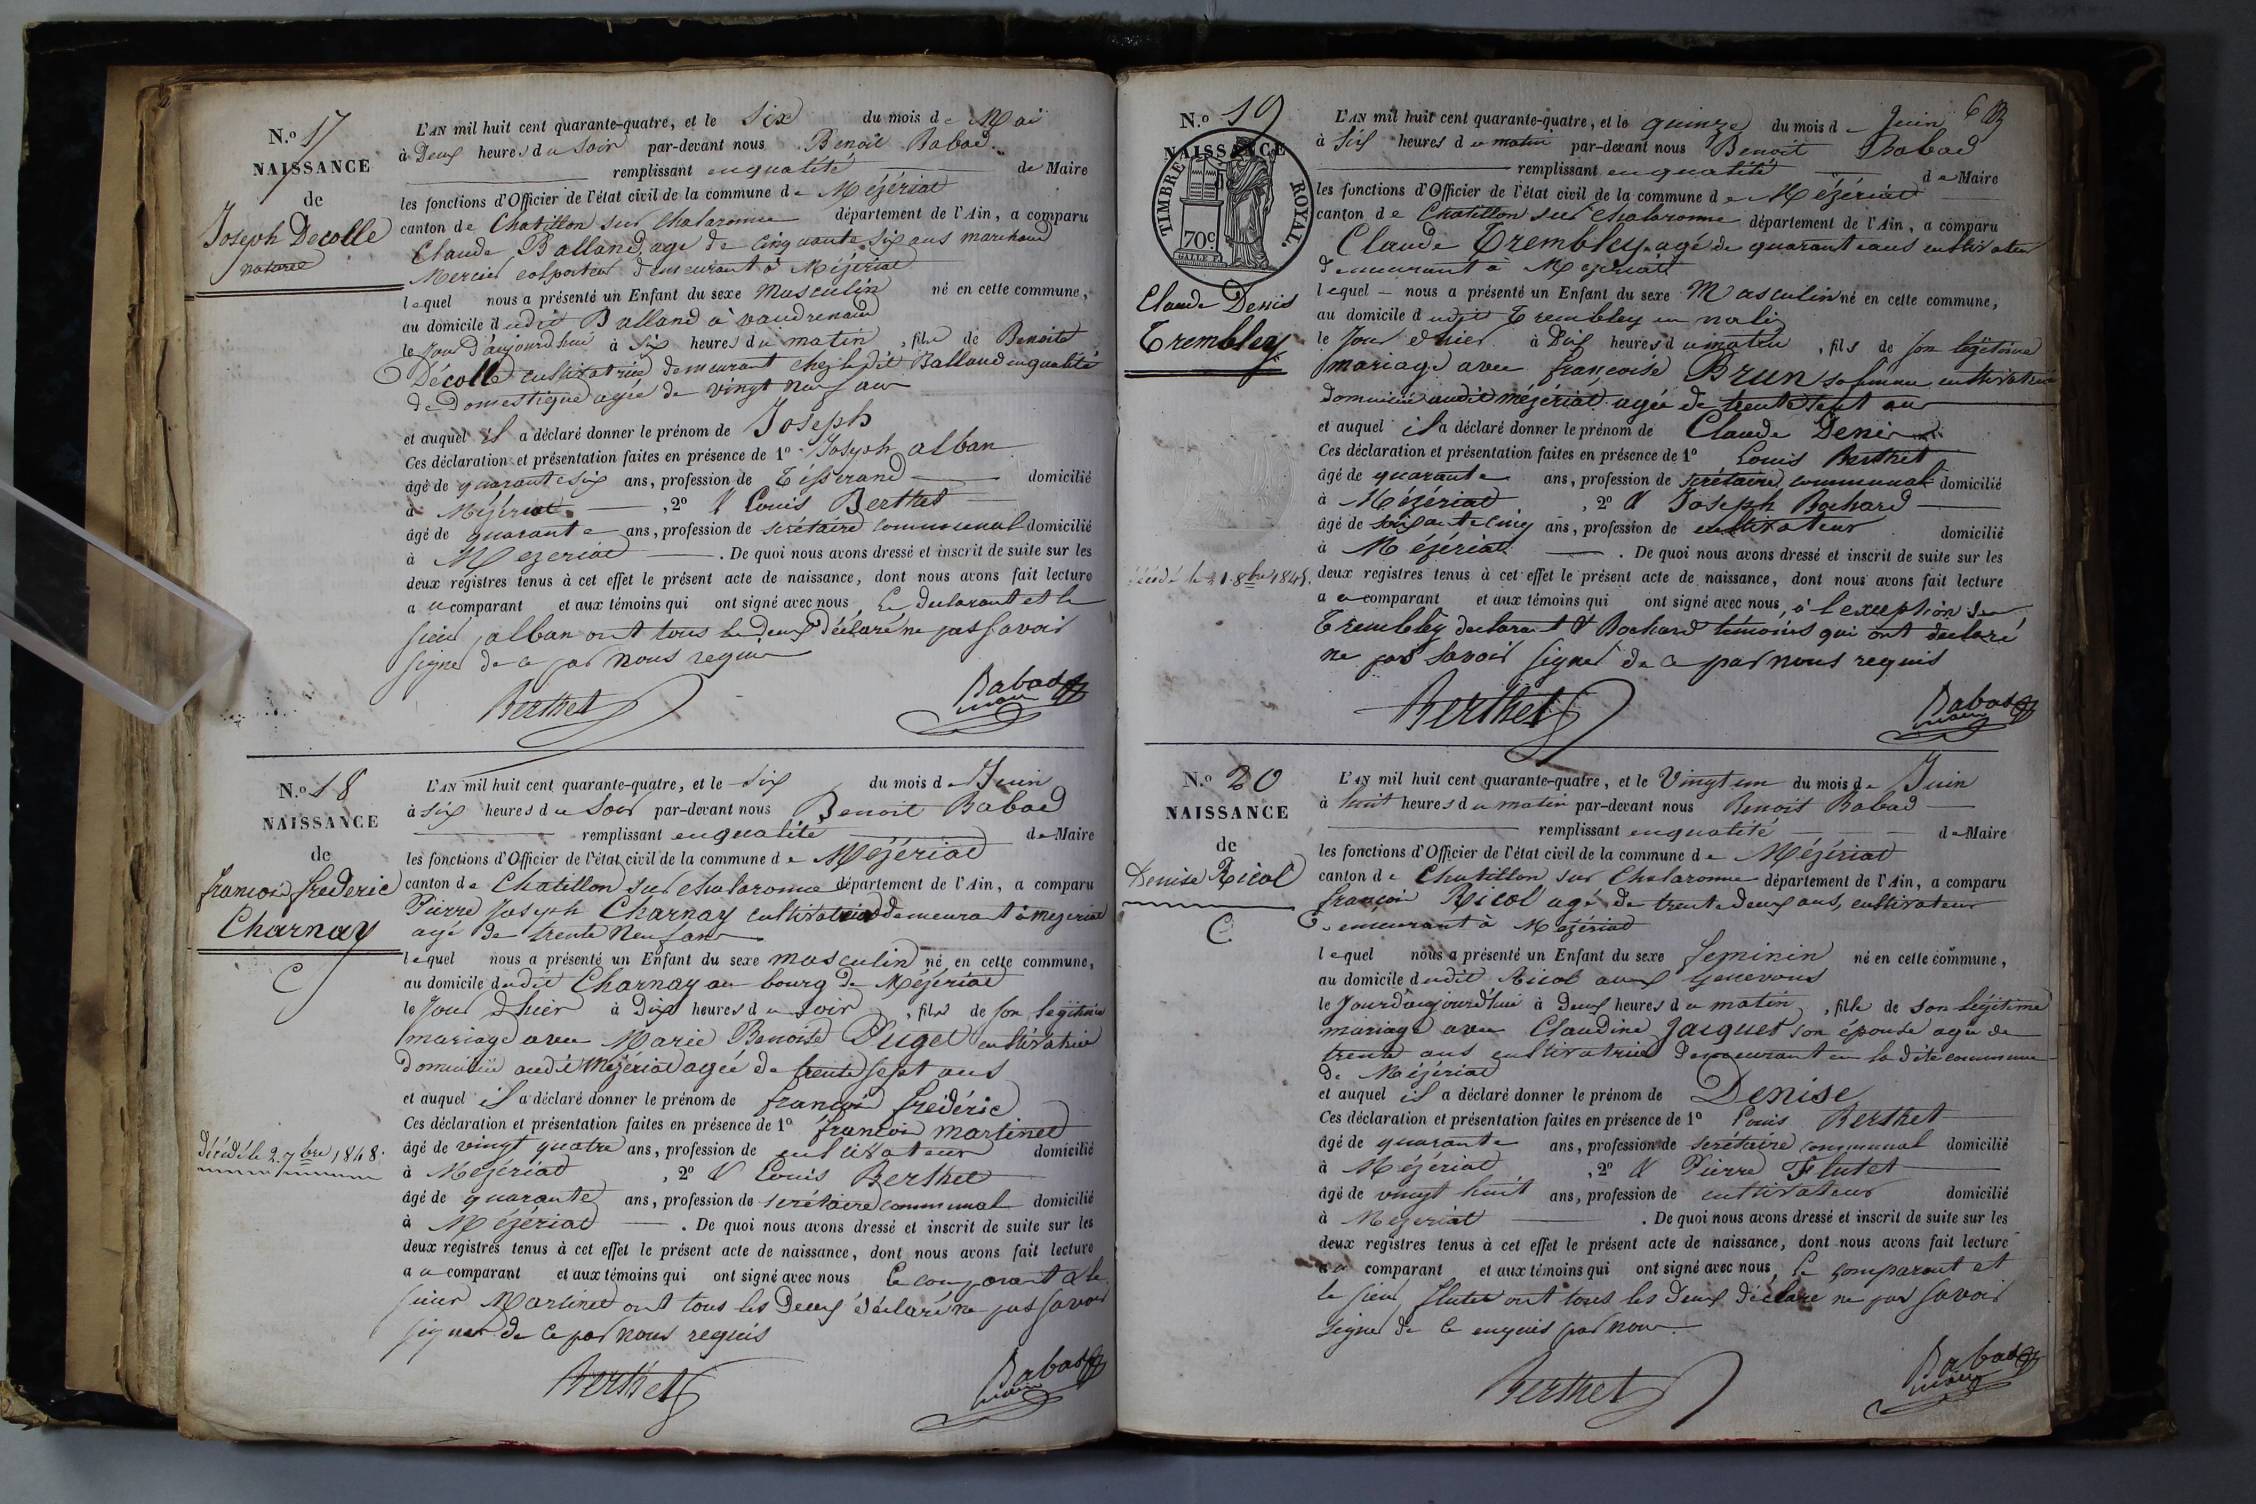 N.º 17
NAISSANCE
de
Joseph Decolle
naturel
L'AN mil huit cent quarante-quatre, et le Six du mois de Mai
à Deux heures du Soir par-devant nous Benoît Babad
remplissant en qualité de Maire
les fonctions d'Officier de l'état civil de la commune de Mézériat
canton de Chatillon sur chalaronne département de l'Ain, a comparu
Claude Balland, agé de cinquante six ans marchand
Mercier colporteur demeurant à Mézériat
lequel nous a présenté un Enfant du sexe Masculin né en cette commune,
au domicile dudit Balland à vaudrenand
le Jour d'aujourdhui à Six heures du matin, fils de Benoite
Décolle cultivatrice demeurant chez le dit Balland en qualité
de Domestique agée de vingt neuf ans
et auquel il a déclaré donner le prénom de Joseph
Ces déclaration et présentation faites en présence de 1º Joseph alban
âgé de quarante six ans, profession de Tisserand domicilié
à Mézériat, 2º & Louis Berthet
âgé de quarante ans, profession de secrétaire communal domicilié
à Mezeriat. De quoi nous avons dressé et inscrit de suite sur les
deux registres tenus à cet effet le présent acte de naissance, dont nous avons fait lecture
au comparant et aux témoins qui ont signé avec nous, Le declarant et le
sieur alban ont tous les deux déclaré ne pas savoir
signer de ce par nous requis
Berthet Babad
maire
N.º 18
NAISSANCE
de
françois frederic
Charnay
C
décédé le 2 7bre 1848.
L'AN mil huit cent quarante-quatre, et le Six du mois de Juin
à six heures du Soir par-devant nous Benoit Babad
remplissant en qualité de Maire
les fonctions d'Officier de l'état civil de la commune de Mézériat
canton de Chatillon sur chalaronne département de l'Ain, a comparu
Pierre Joseph Charnay cultivateur demeurant à mezeriat
agé de trente Neuf ans
lequel nous a présenté un Enfant du sexe masculin né en cette commune,
au domicile dudit Charnay au bourg de Mézériat
le Jour d'hier à Dix heures du soir, fils de son légitime
mariage avec Marie Benoite Puget cultivatrice
Domiciliée audit Mézériat agée de trente sept ans
et auquel il a déclaré donner le prénom de françois frédéric
Ces déclaration et présentation faites en présence de 1º françois martinet
âgé de vingt quatre ans, profession de cultivateur domicilié
à Mezériat, 2º & Louis Berthet
âgé de quarante ans, profession de secrétaire communal domicilié
à Mézériat. De quoi nous avons dressé et inscrit de suite sur les
deux registres tenus à cet effet le présent acte de naissance, dont nous avons fait lecture
au comparant et aux témoins qui ont signé avec nous Le comparant & le
sieur Martinet ont tous les Deux déclaré ne pas savoir
signer de ce par nous requis
Berthet Babad
maire
N.º 19
NAISSANCE
TIMBRE ROYAL.
70c
Claude Denis
Trembley
décédé le 21 8bre 1845.
L'AN mil huit cent quarante-quatre, et le quinze du mois de Juin 6
à Six heures du matin par-devant nous Benoit Babad
remplissant en qualité de Maire
les fonctions d'Officier de l'état civil de la commune de Mézériat
canton de Chatillon sur Chalaronne département de l'Ain, a comparu
Claude Trembley agé de quarante ans cultivateur
demeurant à Mezériat
lequel nous a présenté un Enfant du sexe Masculin né en cette commune,
au domicile dudit Trembley en
le Jour d'hier à Dix heures du matin, fils de son légitime
mariage avec françoise Brun sa femme cultivatrice
Domiciliée audit mézériat agée de trente sept ans
et auquel il a déclaré donner le prénom de Claude Denis
Ces déclaration et présentation faites en présence de 1º Louis Berthet
âgé de quarante ans, profession de secrétaire communal domicilié
à Mézériat, 2º & Joseph Bochard
âgé de soixante cinq ans, profession de cultivateur domicilié
à Mézériat. De quoi nous avons dressé et inscrit de suite sur les
deux registres tenus à cet effet le présent acte de naissance, dont nous avons fait lecture
au comparant et aux témoins qui ont signé avec nous, à l'exception de
Trembley declarant & Bochard témoins qui ont declaré
ne pas savoir signer de ce par nous requis
Berthet Babad
maire
N.º 20
NAISSANCE
de
Denise Ricol
C
L'AN mil huit cent quarante-quatre, et le Vingt un du mois de Juin
à huit heures du matin par-devant nous Benoit Babad
remplissant en qualité de Maire
les fonctions d'Officier de l'état civil de la commune de Mézériat
canton de Chatillon sur Chalaronne département de l'Ain, a comparu
françois Ricol agé de trente deux ans, cultivateur
demeurant à Mezériat
lequel nous a présenté un Enfant du sexe feminin né en cette commune,
au domicile dudit Ricol aux Genevous
le Jourd'aujourd'hui à Deux heures du matin, fille de son légitime
mariage avec Claudine Jacquet son épouse agée de
trente ans cultivatrice demeurant en la dite commune
de Mézériat
et auquel il a déclaré donner le prénom de Denise
Ces déclaration et présentation faites en présence de 1º Louis Berthet
âgé de quarante ans, profession de secrétaire communal domicilié
à Mézériat, 2º & Pierre Flutet
âgé de vingt huit ans, profession de cultivateur domicilié
à Mezeriat. De quoi nous avons dressé et inscrit de suite sur les
deux registres tenus à cet effet le présent acte de naissance, dont nous avons fait lecture
au comparant et aux témoins qui ont signé avec nous, Le comparant et
le sieur flutet ont tous les deux déclaré ne pas savoir
signer de ce enquis par nous.
Berthet Babad
maire